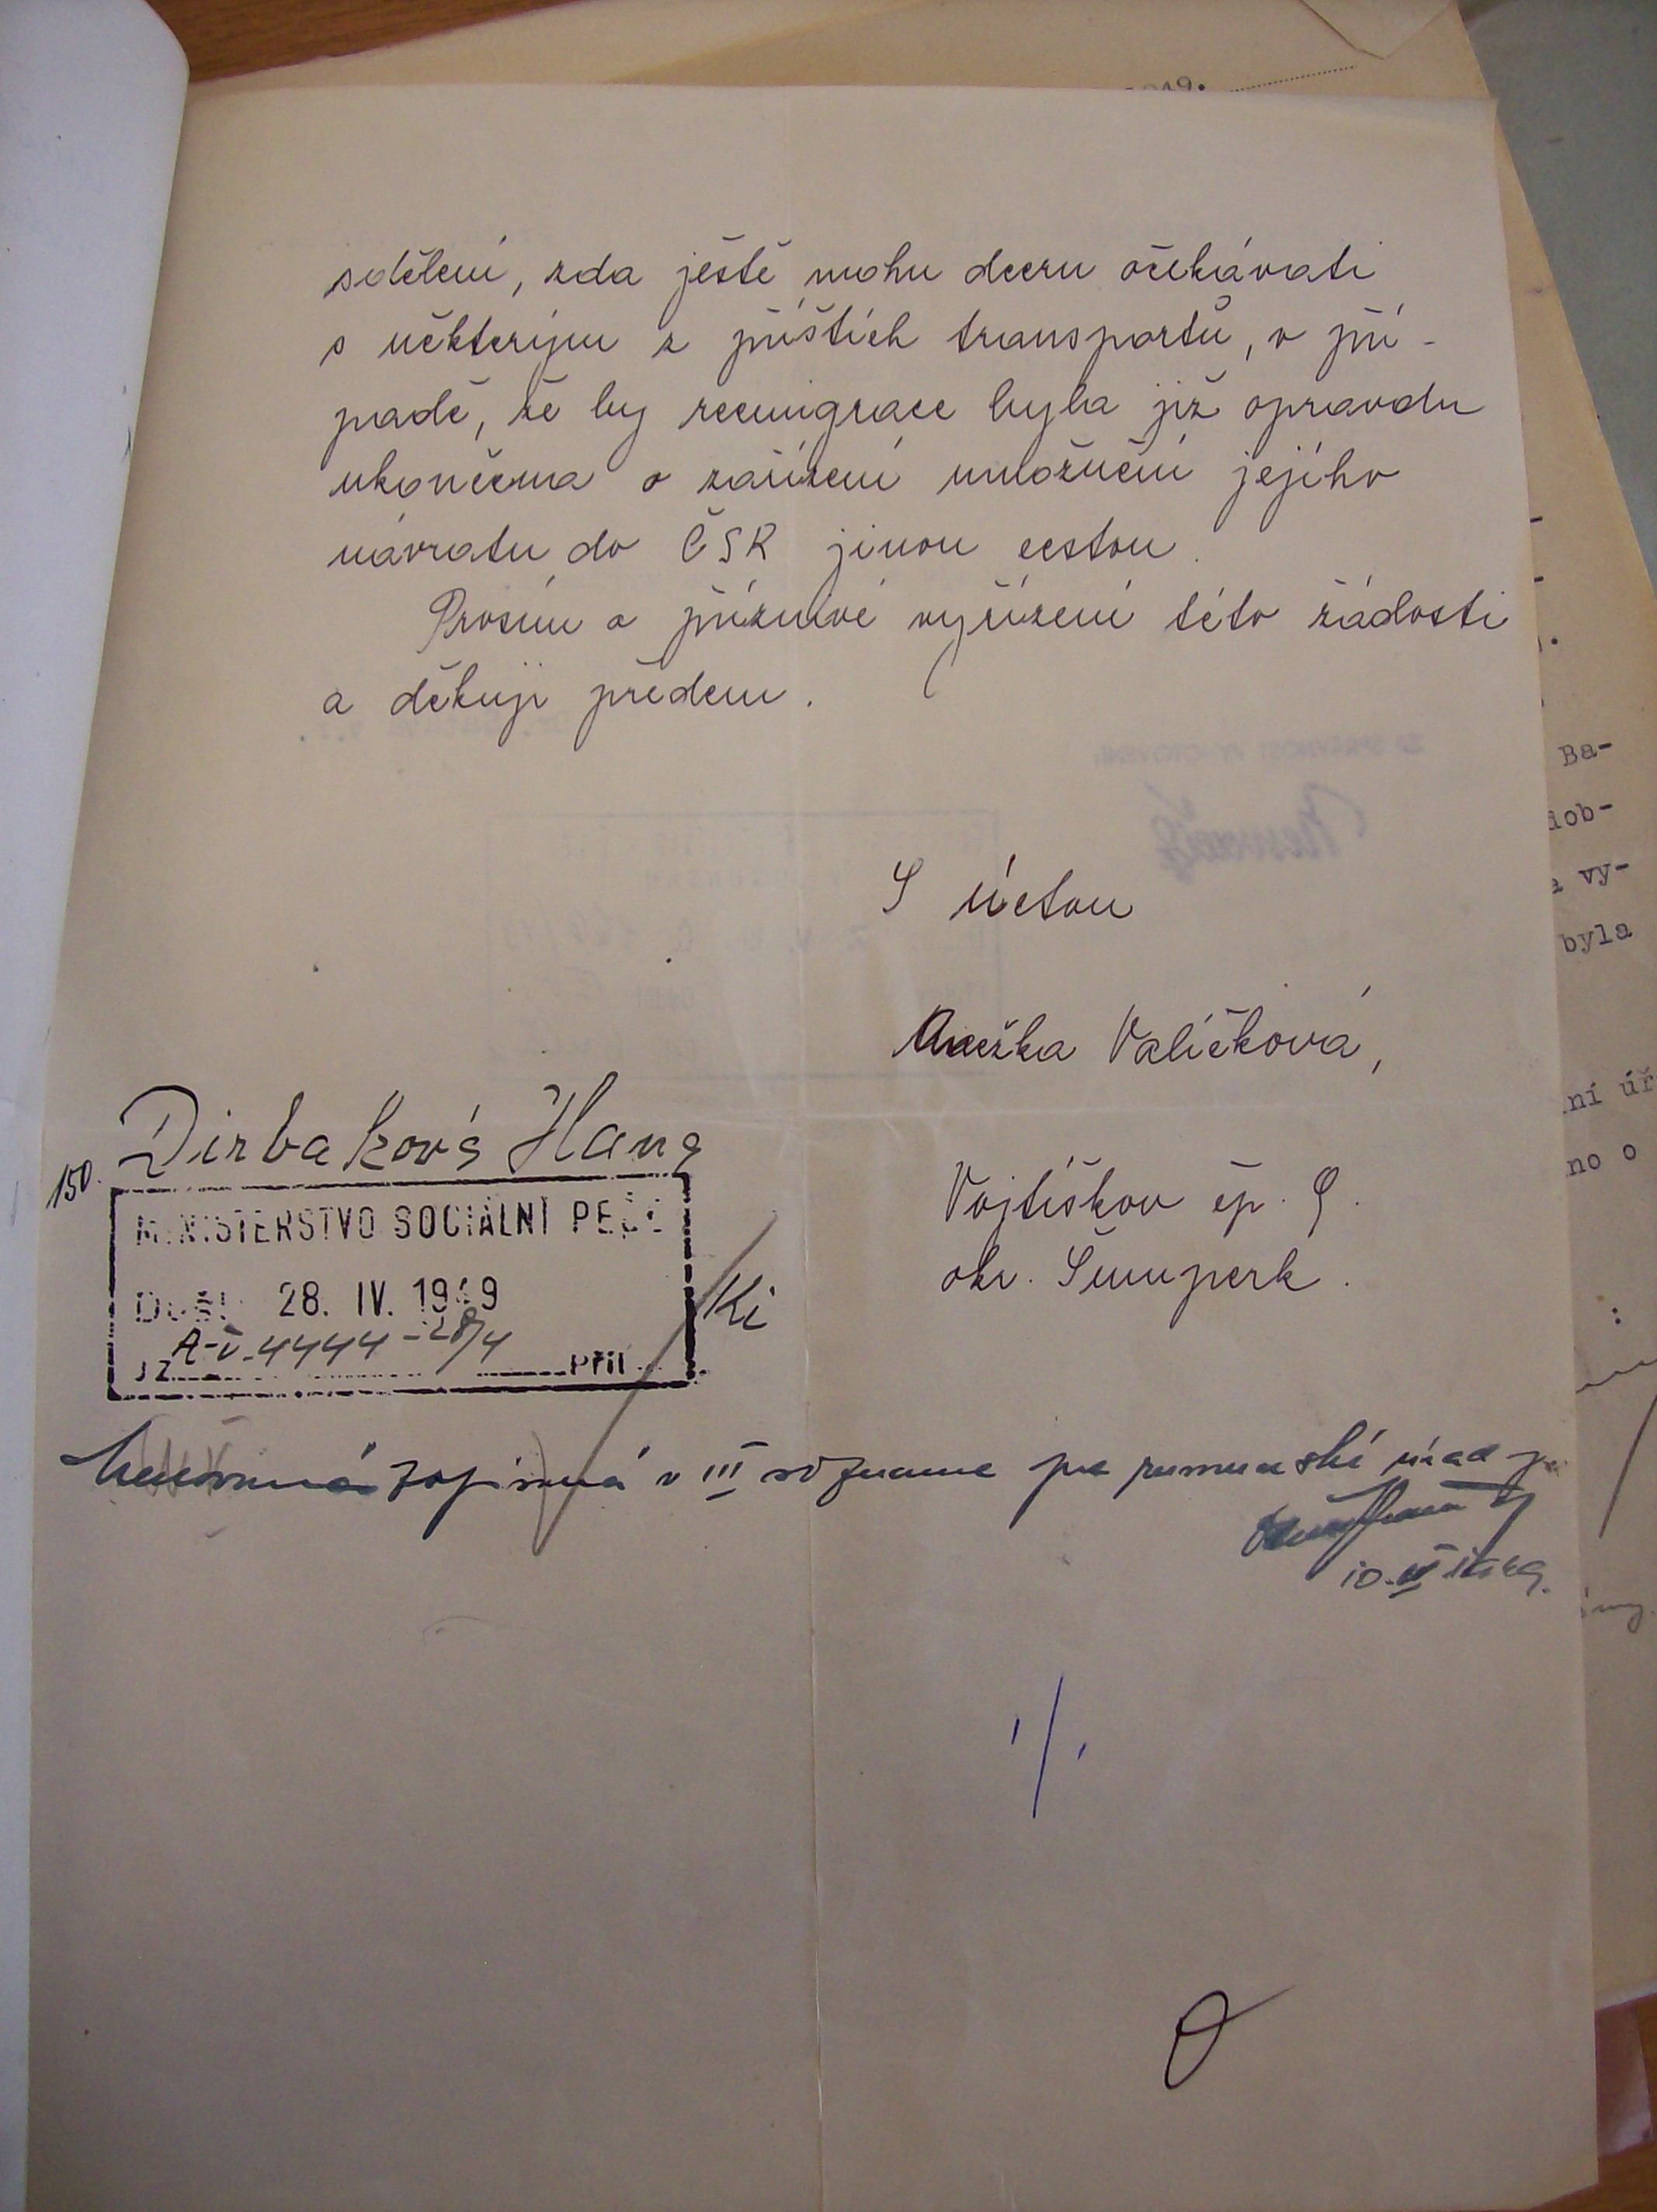 sdělení, zda ještě mohu dceru očekávati
s některým z příštích transportů, v pří-
padě, že by reemigrace byla již opravdu
ukončena o zařízení umožnění jejího
návratu do ČSR jinou cestou.
Prosím o příznivé vyřízení této žádosti
a děkuji předem.
S úctou
Anežka Valíčková,
Vojtíškov čp. 9.
okr. Šumperk.
Dirbaková Hana
150.
MINISTERSTVO SOCIÁLNÍ PÉČE
Došlo 28. IV. 1949
A-V-4444-28/4
JZ Příl
Ki
zapísaná v III sozname pre rumunské úrad
10.
1/1
19.
Ba-
dob-
vy-
byla
ní úř
no o
: